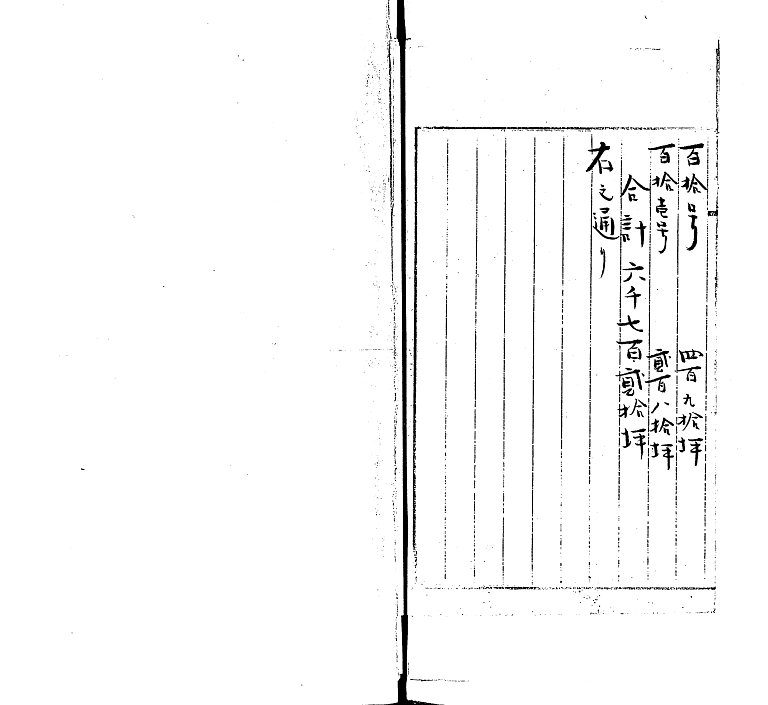 百拾号 四百九拾坪
百拾壱号 貮百八拾坪
合計 六千七百貮拾坪
右之通り